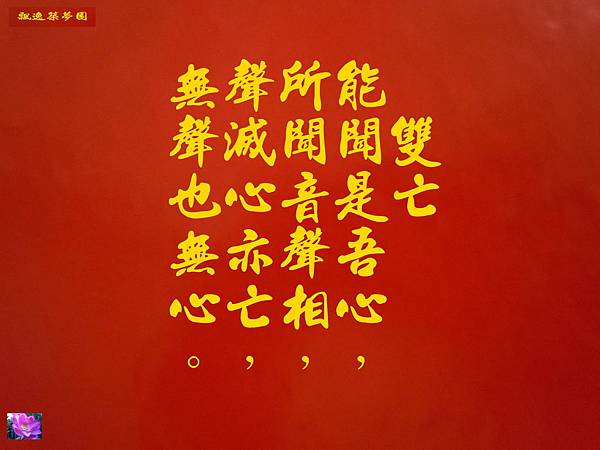 飄逸築夢園
雙亡
能聞是吾心，
所聞音聲相，
聲滅心亦亡，
無聲也無心。